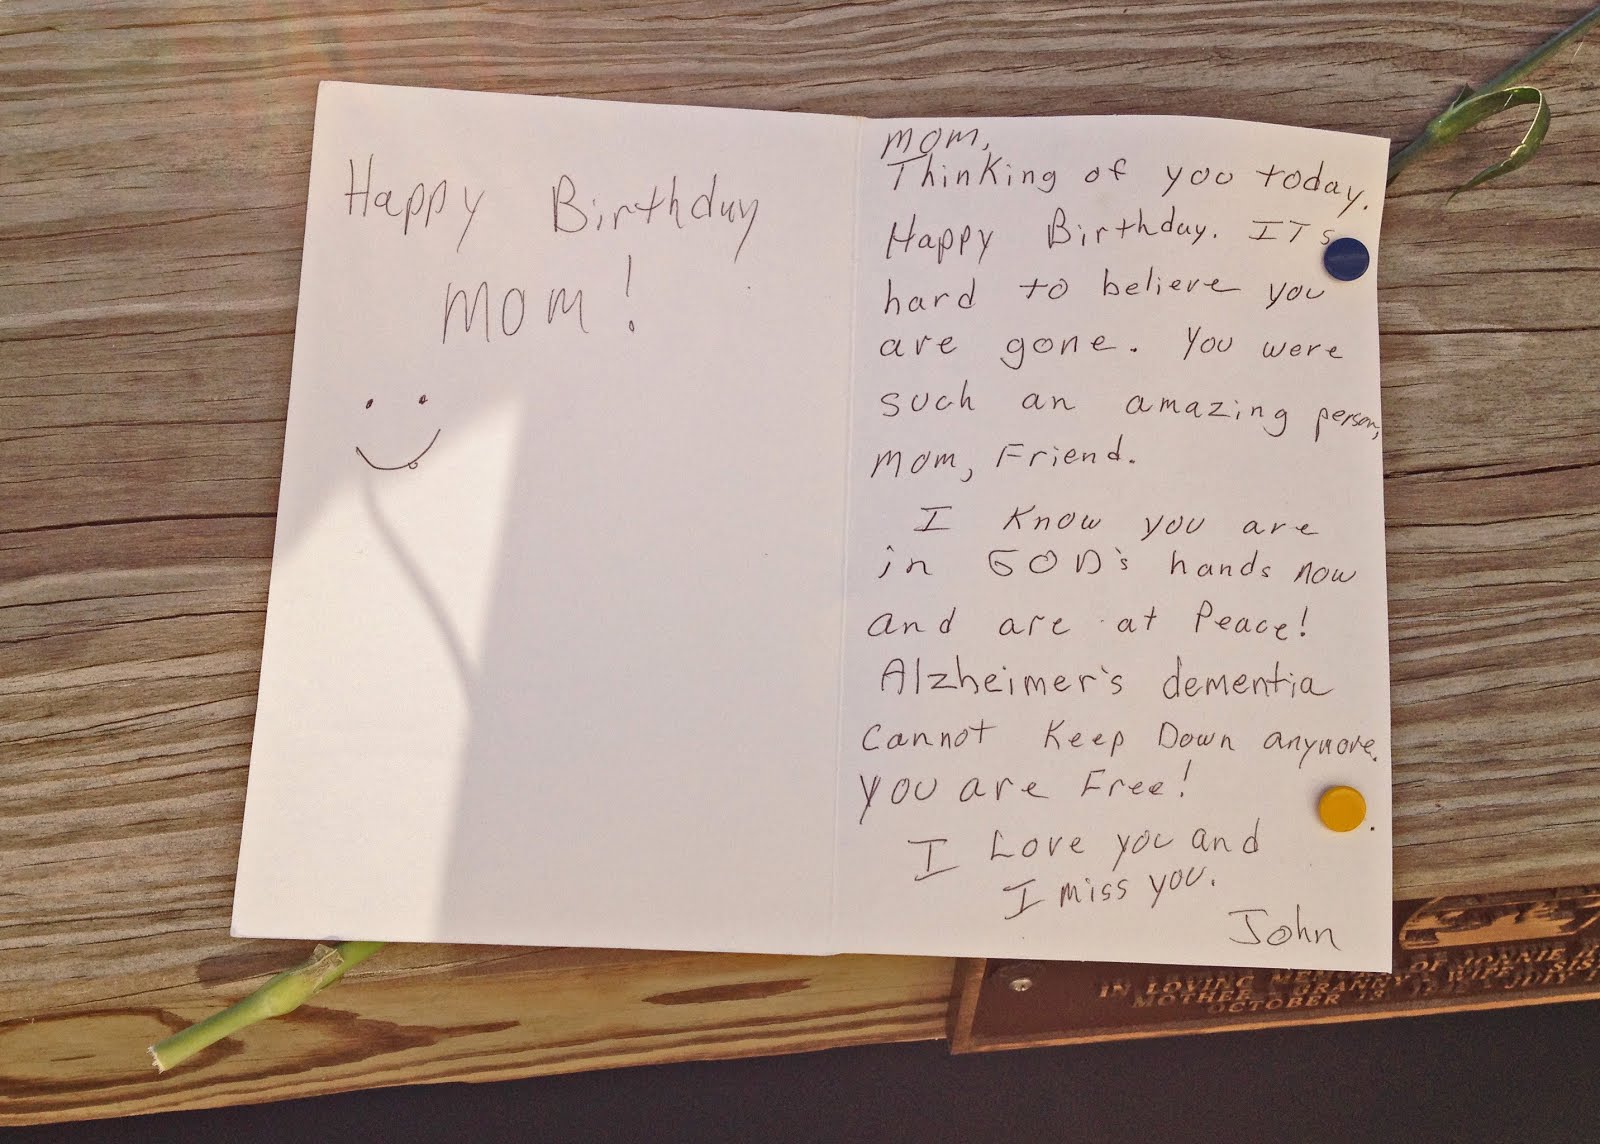 Happy Birthday
MOM!
MOM,
Thinking of you today.
Happy Birthday. ITs
hard to believe you
are gone. You were
such an amazing person,
Mom, Friend.
I Know you are
in GOD's hands now
and are at Peace!
Alzheimer's dementia
cannot Keep Down anymore.
you are Free!
I Love you and
I miss you.
John
IN LOVING MEMORY OF
MOTHER GRANNY WIFE SIS
OCTOBER 13, JULY